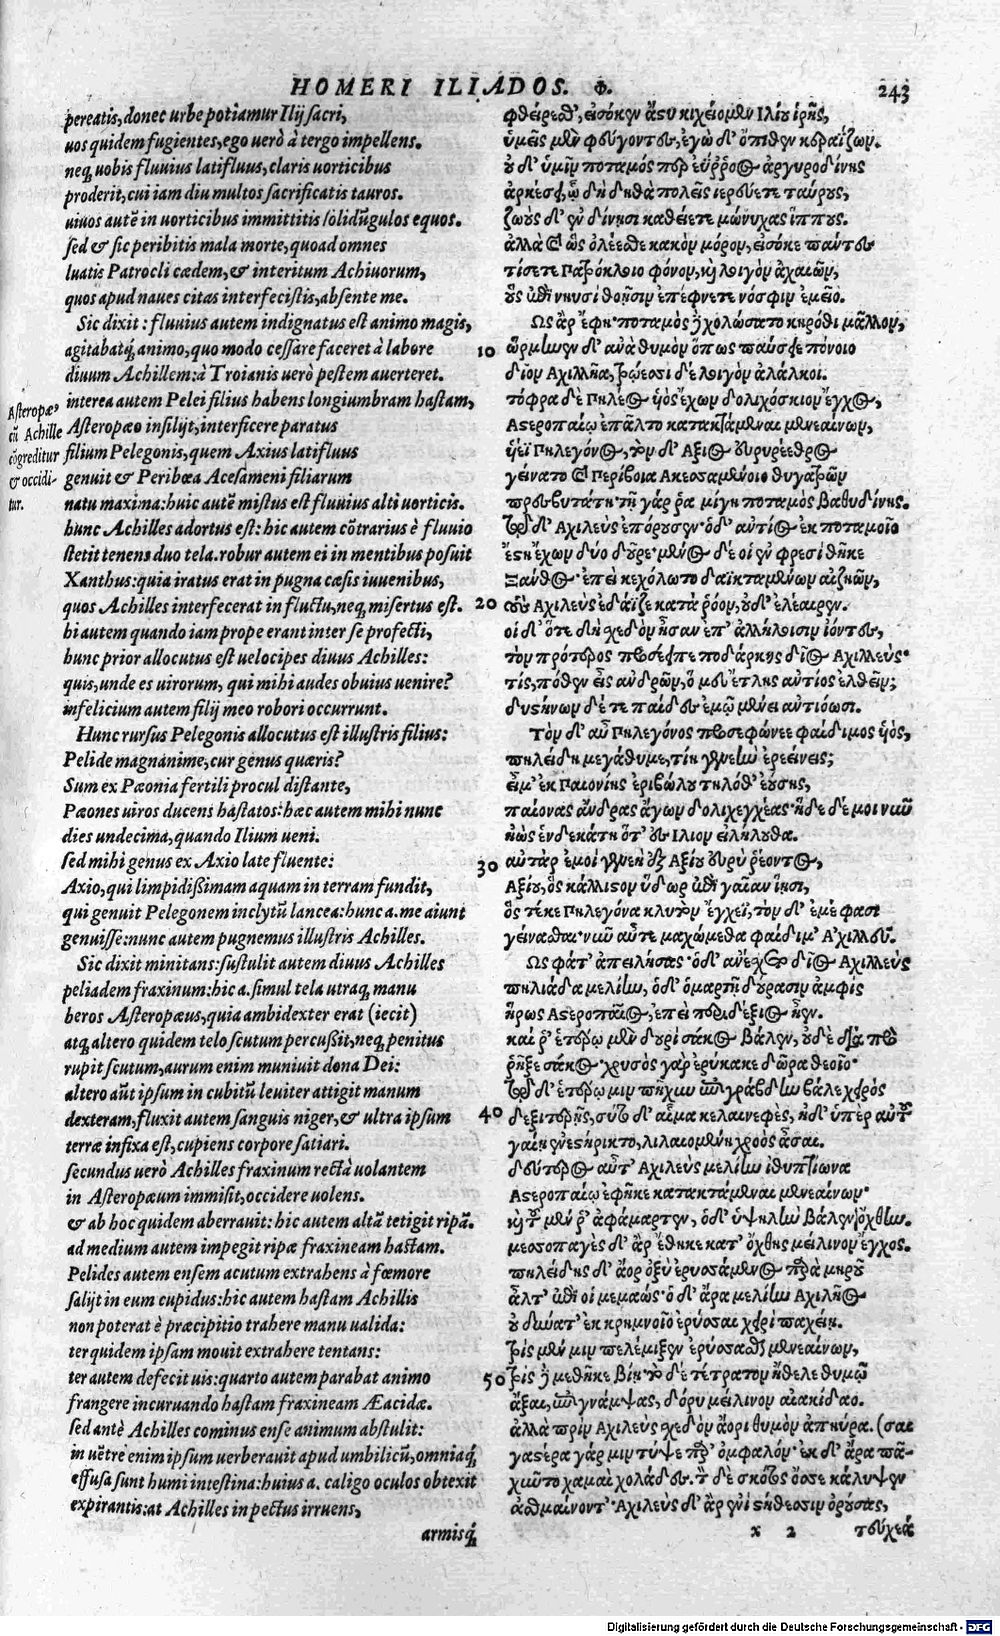 HOMERI ILIADOS. Φ. 243
pereatis, donec urbe potiamur Ilij sacri,
uos quidem fugientes, ego uerò à tergo impellens.
neq; uobis fluuius latifluus, claris uorticibus
proderit, cui iam diu multos sacrificatis tauros.
uiuos autē in uorticibus immittitis solidūgulos equos.
sed & sic peribitis mala morte, quoad omnes
luatis Patrocli cædem, & interitum Achiuorum,
quos apud naues citas interfecistis, absente me.
Sic dixit: fluuius autem indignatus est animo magis,
agitabatq́; animo, quo modo cessare faceret à labore
diuum Achillem: à Troianis uerò pestem auerteret.
interea autem Pelei filius habens longiumbram hastam,
Asteropæo insilijt, interficere paratus
filium Pelegonis, quem Axius latifluus
genuit & Peribœa Acesameni filiarum
natu maxima: huic autē mistus est fluuius alti uorticis.
hunc Achilles adortus est: hic autem cōtrarius è fluuio
stetit tenens duo tela. robur autem ei in mentibus posuit
Xanthus: quia iratus erat in pugna cæsis iuuenibus,
quos Achilles interfecerat in fluctu, neq; misertus est.
hi autem quando iam prope erant inter se profecti,
hunc prior allocutus est uelocipes diuus Achilles:
quis, unde es uirorum, qui mihi audes obuius uenire?
infelicium autem filij meo robori occurrunt.
Hunc rursus Pelegonis allocutus est illustris filius:
Pelide magnanime, cur genus quæris?
Sum ex Pæonia fertili procul distante,
Pæones uiros ducens hastatos: hæc autem mihi nunc
dies undecima, quando Ilium ueni.
sed mihi genus ex Axio late fluente:
Axio, qui limpidißimam aquam in terram fundit,
qui genuit Pelegonem inclytū lancea: hunc a. me aiunt
genuisse: nunc autem pugnemus illustris Achilles.
Sic dixit minitans: sustulit autem diuus Achilles
peliadem fraxinum: hic a. simul tela utraq; manu
heros Asteropæus, quia ambidexter erat (iecit)
atq; altero quidem telo scutum percußit, neq; penitus
rupit scutum, aurum enim muniuit dona Dei:
altero aūt ipsum in cubitū leuiter attigit manum
dexteram, fluxit autem sanguis niger, & ultra ipsum
terræ infixa est, cupiens corpore satiari.
secundus uerò Achilles fraxinum rectà uolantem
in Asteropæum immisit, occidere uolens.
& ab hoc quidem aberrauit: hic autem altā tetigit ripā.
ad medium autem impegit ripæ fraxineam hastam.
Pelides autem ensem acutum extrahens à fœmore
salijt in eum cupidus: hic autem hastam Achillis
non poterat è præcipitio trahere manu ualida:
ter quidem ipsam mouit extrahere tentans:
ter autem defecit uis: quarto autem parabat animo
frangere incuruando hastam fraxineam Æacidæ.
sed antè Achilles cominus ense animum abstulit:
in uētre enim ipsum uerberauit apud umbilicū, omniaq́;
effusa sunt humi intestina: huius a. caligo oculos obtexit
expirantis: at Achilles in pectus irruens,
armisq́;
Asteropæ⁹
cū Achille
cōgreditur
& occidi-
tur.
φθείρεσθ', εἰσόκεν ἄστυ κιχείομεν Ιλίου ἱρῆς,
ὑμεῖς μὲν φεύγοντες, ἐγὼ δ' ὄπιθεν κεραΐζων.
οὐ δ' ὑμῖν ποταμός περ ἐΰρροος ἀργυροδίνης
ἀρκέσει, ᾧ δὴ δηθὰ πολεῖς ἱερεύετε ταύρους,
ζωοὺς δ' ἐν δίνῃσι καθίετε μώνυχας ἵππους.
ἀλλὰ καὶ ὣς ὀλέεσθε κακὸν μόρον, εἰσόκε πάντες
τίσετε Πατρόκλοιο φόνον, καὶ λοιγὸν ἀχαιῶν,
οὓς ἐπὶ νηυσὶ θοῇσιν ἐπέφνετε νόσφιν ἐμεῖο.
Ως ἂρ ἔφη· ποταμὸς δὲ χολώσατο κηρόθι μᾶλλον,
10 ὥρμηνεν δ' ἀνὰ θυμὸν ὅπως παύσειε πόνοιο
δῖον Αχιλλῆα, τρώεσσι δὲ λοιγὸν ἀλάλκοι.
τόφρα δὲ Πηλέος ὑὸς ἔχων δολιχόσκιον ἔγχος,
Αστεροπαίῳ ἐπᾶλτο κατακτάμεναι μενεαίνων,
ὑέϊ Πηλεγόνος, τὸν δ' Αξιὸς εὐρυρέεθρος
γείνατο καὶ Περίβοια Ακεσσαμένοιο θυγατρῶν
πρεσβυτάτη· τῇ γάρ ῥα μίγη ποταμὸς βαθυδίνης.
τῷ δ' Αχιλεὺς ἐπόρουσεν· ὁ δ' ἀντίος ἐκ ποταμοῖο
ἔστη ἔχων δύο δοῦρε· μένος δέ οἱ ἐν φρεσὶ θῆκε
Ξάνθος· ἐπεὶ κεχόλωτο δαϊκταμένων αἰζηῶν,
20 τοὺς Αχιλεὺς ἐδάϊζε κατὰ ῥόον, οὐδ' ἐλέαιρεν.
οἱ δ' ὅτε δὴ σχεδὸν ἦσαν ἐπ' ἀλλήλοισιν ἰόντες,
τὸν πρότερος προσέειπε ποδάρκης δῖος Αχιλλεύς·
τίς, πόθεν εἶς ἀνδρῶν, ὅ μευ ἔτλης ἀντίος ἐλθεῖν;
δυστήνων δέ τε παῖδες ἐμῷ μένει ἀντιόωσι.
Τὸν δ' αὖ Πηλεγόνος προσεφώνεε φαίδιμος ὑὸς,
πηλείδη μεγάθυμε, τίη γενεὴν ἐρεείνεις;
εἴμ' ἐκ Παιονίης ἐριβώλου τηλόθ' ἐούσης,
παίονας ἄνδρας ἄγων δολιχεγχέας· ἥδε δέ μοι νῦν
ἠὼς ἑνδεκάτη ὅτ' ἐς Ιλιον εἰλήλουθα.
30 αὐτὰρ ἐμοὶ γενεὴ ἐξ Αξίου εὐρὺ ῥέοντος,
Αξίου, ὃς κάλλιστον ὕδωρ ἐπὶ γαῖαν ἵησι,
ὃς τέκε Πηλεγόνα κλυτὸν ἔγχεϊ, τὸν δ' ἐμέ φασι
γείνασθαι· νῦν αὖτε μαχώμεθα φαίδιμ' Ἀχιλλεῦ.
Ως φάτ' ἀπειλήσας· ὁ δ' ἀνέσχετο δῖος Αχιλλεὺς
πηλιάδα μελίην, ὁ δ' ὁμαρτῇ δούρασιν ἀμφὶς
ἥρως Αστεροπαῖος, ἐπεὶ περιδέξιος ἦεν.
καί ῥ' ἑτέρῳ μὲν δουρὶ σάκος βάλεν, οὐδὲ διὰ πρὸ
ῥῆξε σάκος· χρυσὸς γὰρ ἐρύκακε δῶρα θεοῖο·
τῷ δ' ἑτέρῳ μιν πῆχυν ἐπιγράβδην βάλε χειρὸς
40 δεξιτερῆς, σύτο δ' αἷμα κελαινεφὲς, ἡ δ' ὑπὲρ αὐτοῦ
γαίῃ ἐνεστήρικτο, λιλαιομένη χροὸς ἆσαι.
δεύτερος αὖτ' Αχιλεὺς μελίην ἰθυπτίωνα
Αστεροπαίῳ ἐφῆκε κατακτάμεναι μενεαίνων·
καὶ τοῦ μέν ῥ' ἀφάμαρτεν, ὁ δ' ὑψηλὴν βάλεν ὄχθην.
μεσοπαγὲς δ' ἂρ ἔθηκε κατ' ὄχθης μείλινον ἔγχος.
πηλείδης δ' ἄορ ὀξὺ ἐρυσσάμενος παρὰ μηροῦ
ἆλτ' ἐπί οἱ μεμαώς· ὁ δ' ἄρα μελίην Αχιλῆος
οὐ δύνατ' ἐκ κρημνοῖο ἐρύσσαι χειρὶ παχείῃ.
τρὶς μέν μιν πελέμιξεν ἐρύσσασθαι μενεαίνων,
50 τρὶς δὲ μεθῆκε βίη· τὸ δὲ τέτρατον ἤθελε θυμῷ
ἄξαι, ἐπιγνάμψας, δόρυ μείλινον αἰακίδαο.
ἀλλὰ πρὶν Αχιλεὺς σχεδὸν ἄορι θυμὸν ἀπηύρα. (σαι
γαστέρα γάρ μιν τύψε παρ' ὀμφαλόν· ἐκ δ' ἄρα πᾶ-
χυῦτο χαμαὶ χολάδες. τὸν δὲ σκότος ὄσσε κάλυψεν
ἀσθμαίνοντ'· Αχιλεὺς δ' ἂρ ἐνὶ στήθεσσιν ὀρούσας,
x 2 τεύχεά
Digitalisierung gefördert durch die Deutsche Forschungsgemeinschaft - DFG